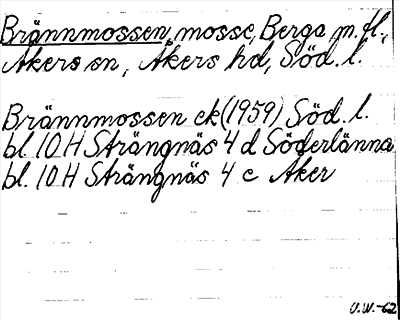 Brännmossen, mosse, Berga m.fl.,
Åkers sn, Åkers hd, Söd. l.
Brännmossen ek (1959) Söd. l.
bl. 10 H Strängnäs 4 d Söderlänna
bl. 10 H Strängnäs 4 c Åker
U.W.-62